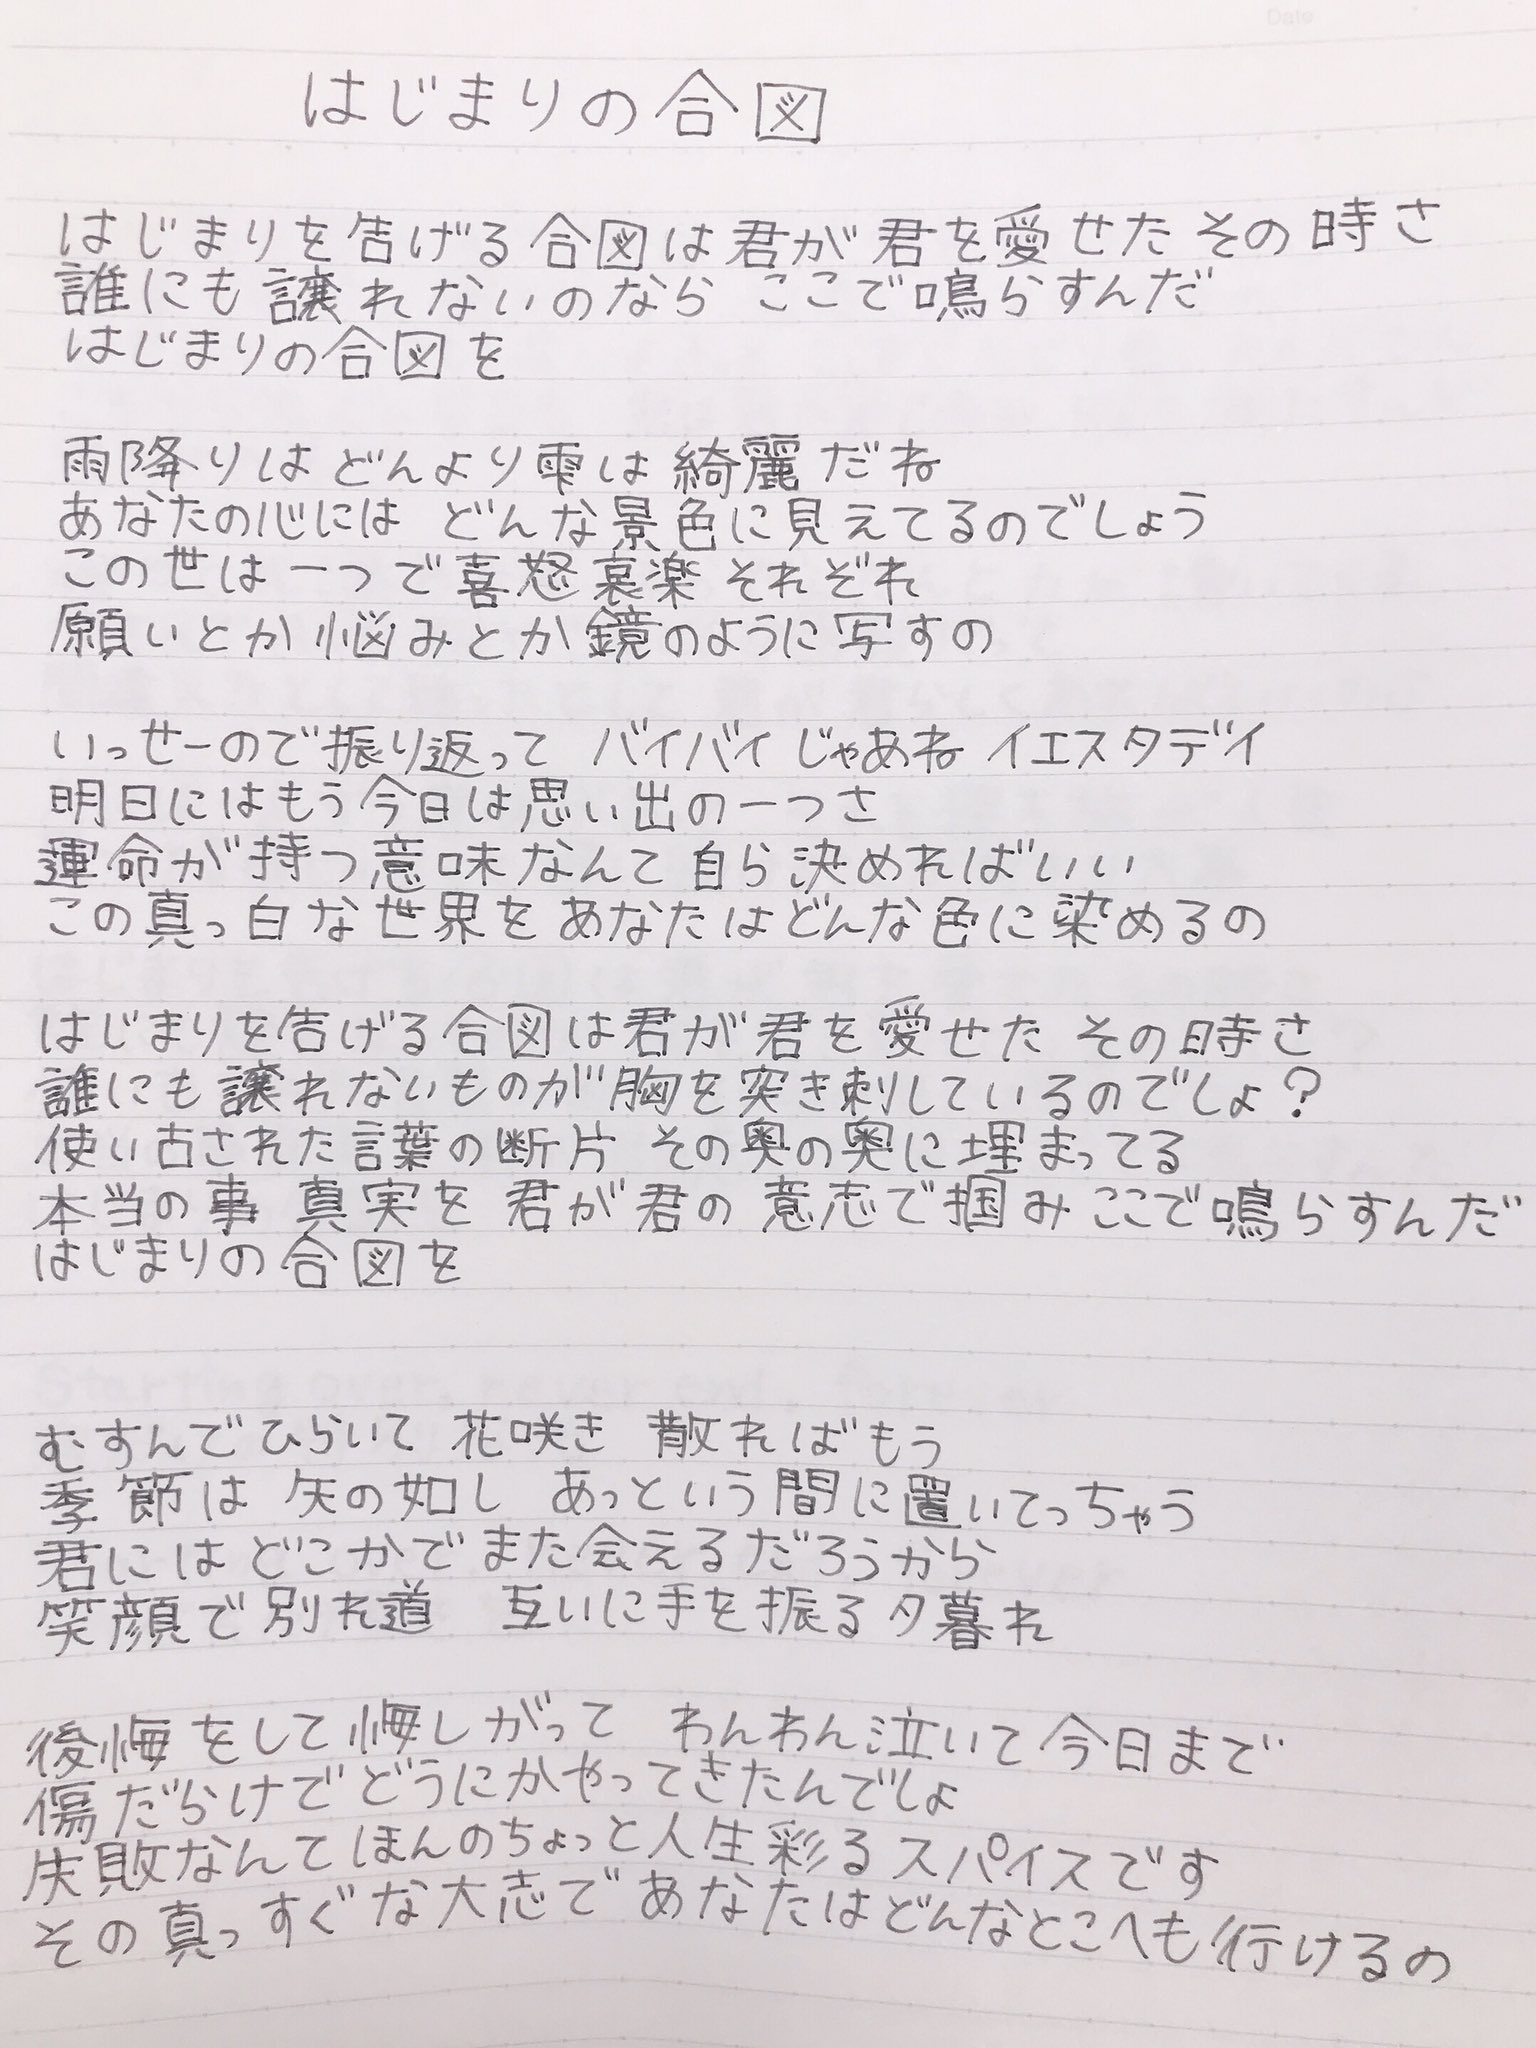 Date
はじまりの合図
はじまりを告げる合図は君が君を愛せたその時さ
誰にも譲れないのなら ここで鳴らすんだ
はじまりの合図を
雨降りはどんより雫は綺麗だね
あなたの心には どんな景色に見えてるのでしょう
この世は一つで喜怒哀楽それぞれ
願いとか悩みとか鏡のように写すの
いっせーので振り返って バイバイじゃあねイエスタデイ
明日にはもう今日は思い出の一つさ
運命が持つ意味なんて自ら決めればいい
この真っ白な世界をあなたはどんな色に染めるの
はじまりを告げる合図は君が君を愛せた その時さ
誰にも譲れないものが胸を突き刺しているのでしょ?
使い古された言葉の断片 その奥の奥に埋まってる
本当の事 真実を 君が君の意志で掴み ここで鳴らすんだ
はじまりの合図を
むすんでひらいて 花咲き 散ればもう
季節は 矢の如し あっという間に置いてっちゃう
君にはどこかでまた会えるだろうから
笑顔で別れ道 互いに手を振る夕暮れ
後悔をして悔しがって わんわん泣いて今日まで
傷だらけでどうにかやってきたんでしょ
失敗なんてほんのちょっと人生彩るスパイスです
その真っすぐな大志であなたはどんなとこへも行けるの